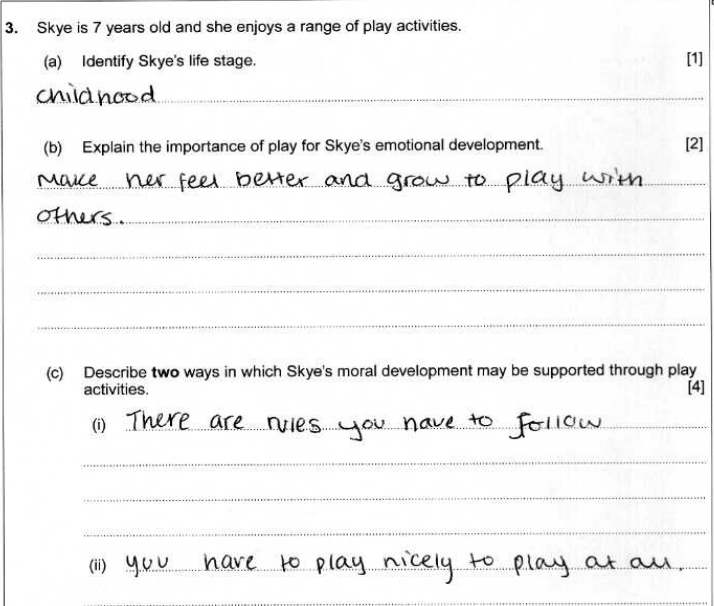 3. Skye is 7 years old and she enjoys a range of play activities.
(a) Identify Skye's life stage. [1]
childhood
(b) Explain the importance of play for Skye's emotional development. [2]
Make her feel better and grow to play with
others.
(c) Describe two ways in which Skye's moral development may be supported through play
activities. [4]
(i) There are rules you have to follow
(ii) you have to play nicely to play at all.